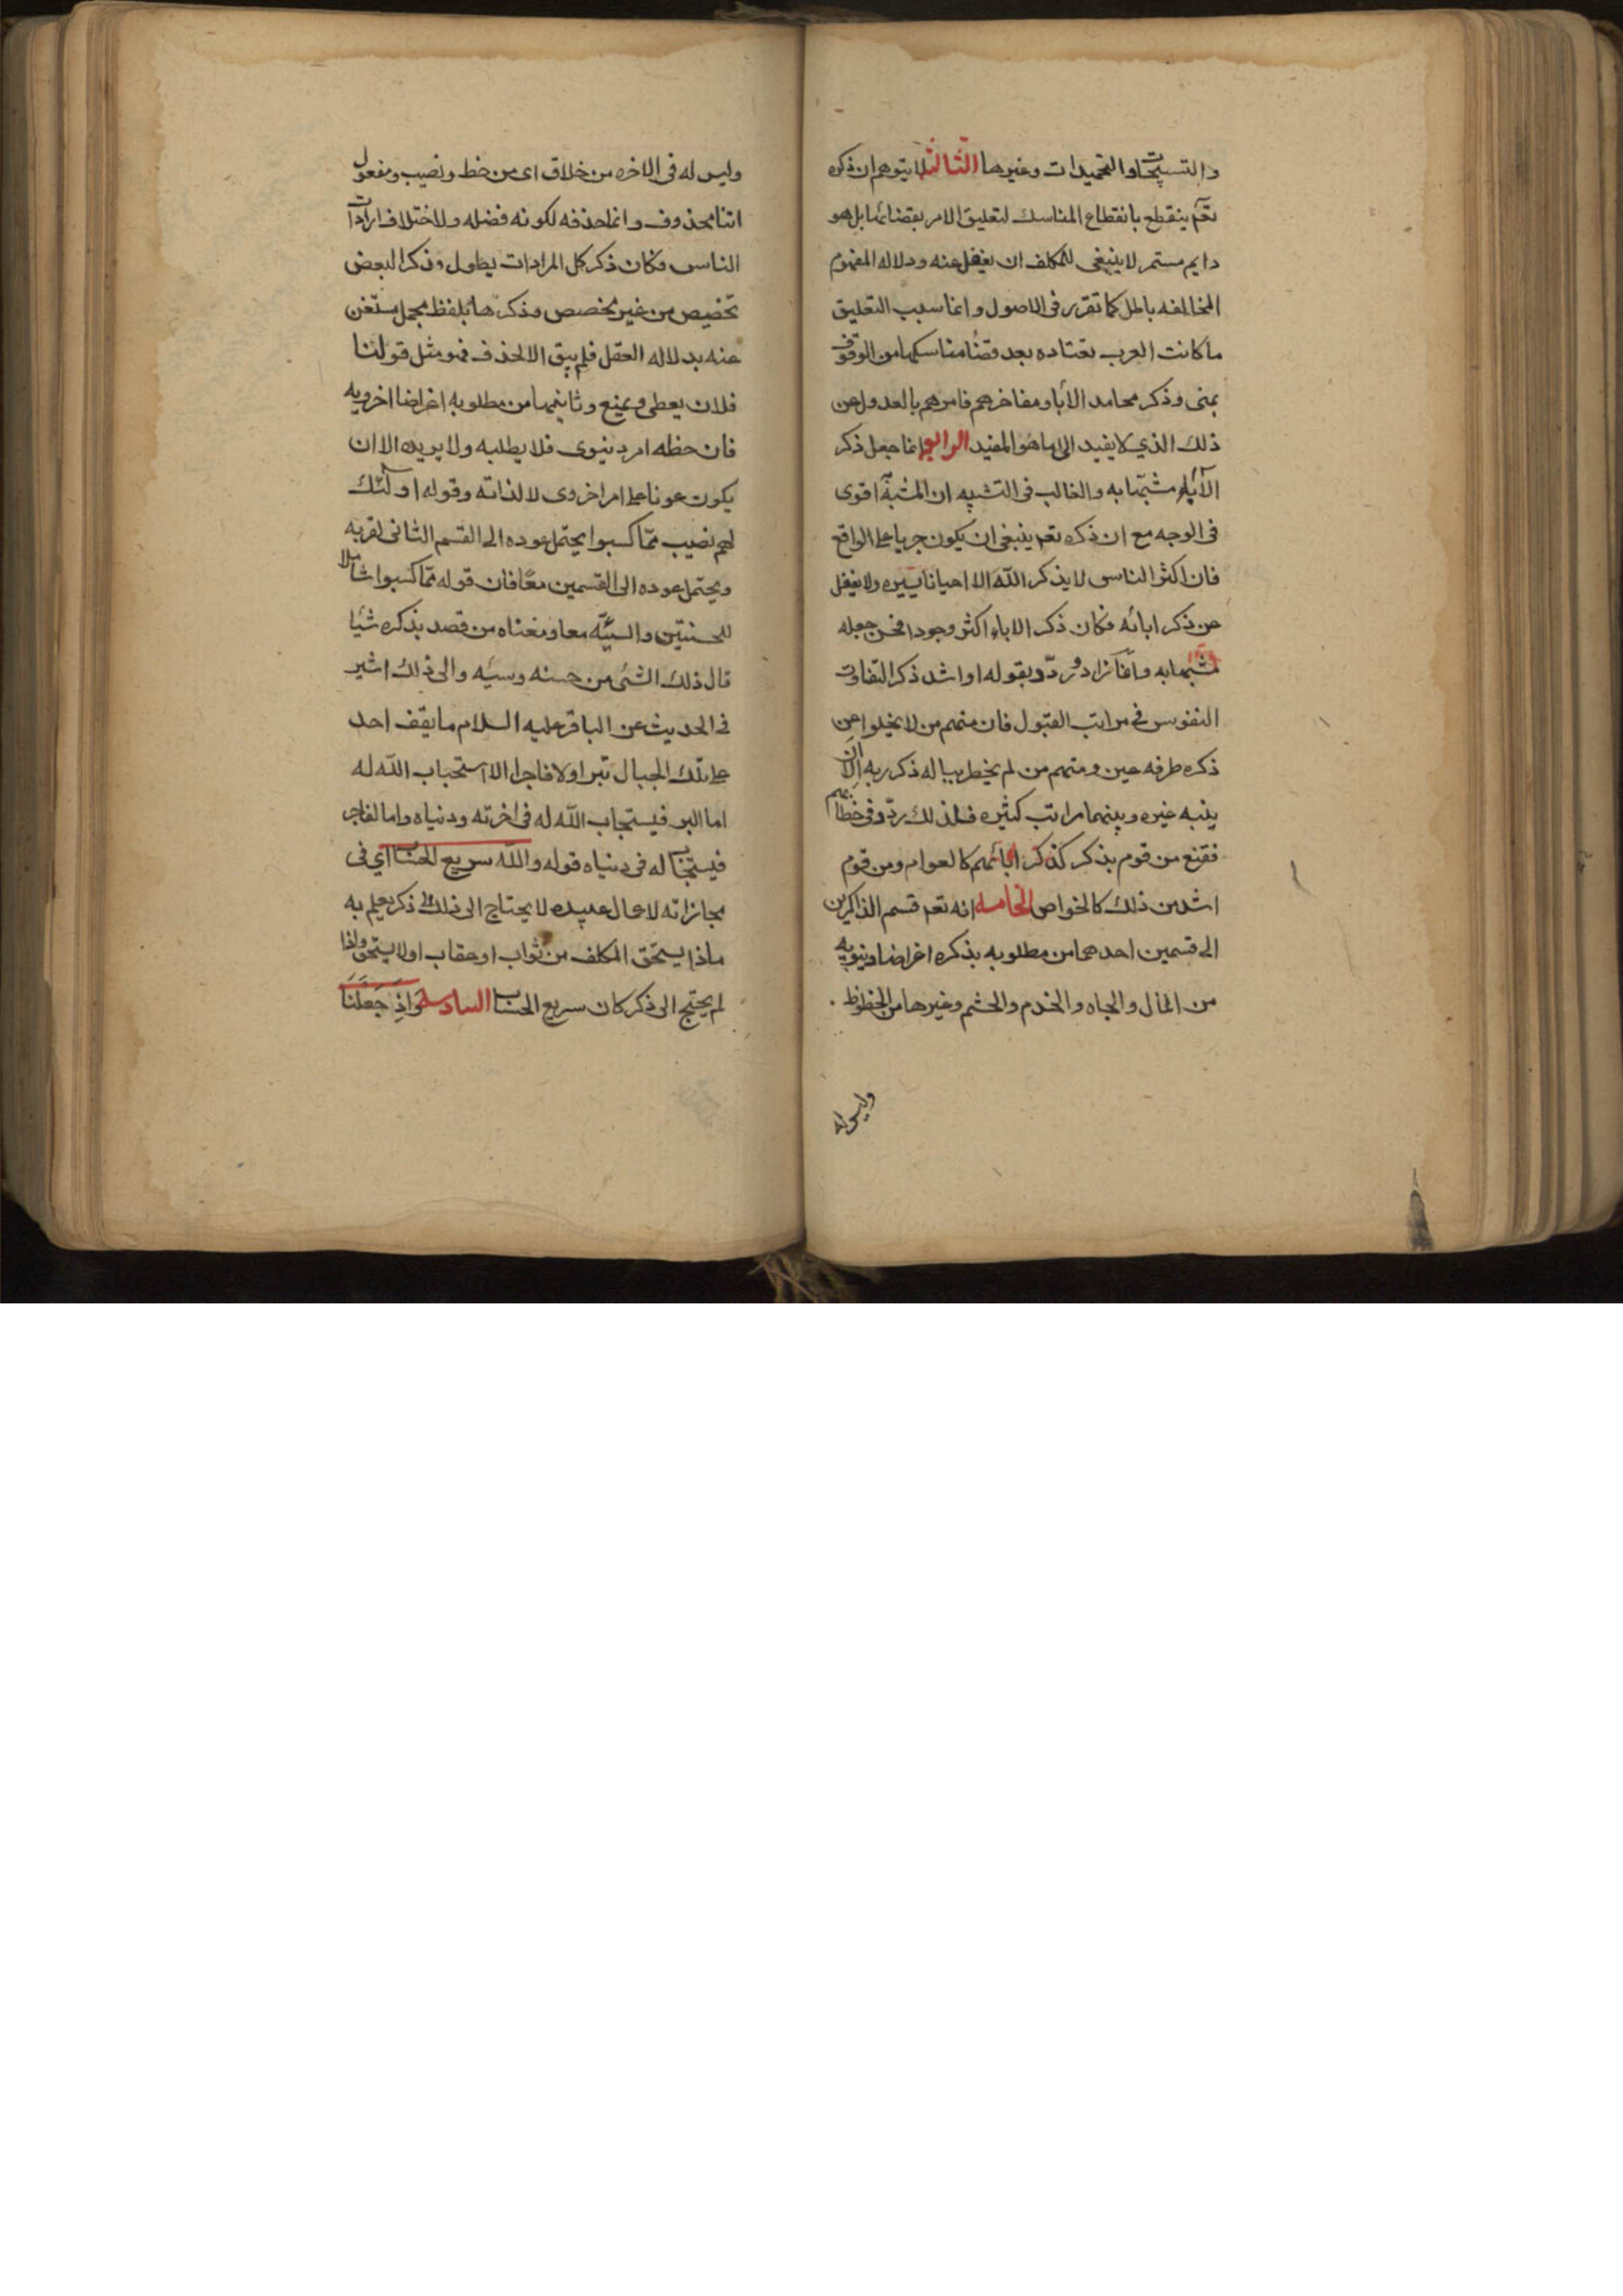 والتسبيحات او التحميدات وغيرها الثالث لا يتوهم ان ذكره
تعم ينقطع بانقطاع المناسك لتعليق الامر بقضائها بل هو
دايم مستمر لا ينبغى للمكلف ان يغفل عنه ودلاله المفهوم
المخالفه باطل كما تقرر فى الاصول وانما سبب التعليق
ما كانت العرب تعتاده بعد قضا مناسكها من الوقوف
بمنى وذكر محامد الأبا ومفاخرهم فامرهم بالعدول عن
ذلك الذي لا يفيد الى ما هو المفيد الرابع انما جعل ذكر
الآباء مشبها به والغالب فى التشبيه ان المشبه به اقوى
فى الوجه مع ان ذكره تعم ينبغى ان يكون جريا على الواقع
فان اكثر الناس لا يذكر الله الا احيانا يسيره ولا يغفل
عن ذكر ابائه فكان ذكر الاباء اكثر وجودا فحسن جعله
مشبها به وانما ردّد بقوله او اشد ذكرا لتفاوت
النفوس فى مراتب القبول فان منهم من لا يخلوا عن
ذكره طرفه عين ومنهم من لم يخطر بباله ذكر ربه الا ان
ينبه غيره وبينهما مراتب كثيره فلذلك ردّد فى خطابهم
فقنع من قوم بذكر كذكر ابائهم كالعوام ومن قوم
اشد من ذلك كالخواص الخامسه انه تعم قسم الذاكرين
الى قسمين احدهما من مطلوبه بذكره اغراضا دنيويه
من المال والجاه والخدم والحشم وغيرها من الحظوظ
وليس له
وليس له فى الاخره من خلاق اى من حظ ونصيب ومفعول
اتنا محذوف وانما حذفه لكونه فضله ولاختلاف ارادات
الناس فكان ذكر كل المرادات يطول وذكر البعض
تخصيص من غير مخصص وذكرها بلفظ مجمل مستغن
عنه بدلاله العقل فلم يبق الا الحذف فهو مثل قولنا
فلان يعطى ويمنع وثانيهما من مطلوبه اغراضا اخرويه
فان حظه امر دنيوى فلا يطلبه ولا يريده الا ان
يكون عونا على امر اخروى لا لذاته وقوله اولئك
لهم نصيب مما كسبوا يحتمل عوده الى القسم الثانى لقربه
ويحتمل عوده الى القسمين معا فان قوله مما كسبوا شاملا
للحسنتين والسيئه معا ومعناه من قصد بذكره شيا
قال ذلك الشئ من حسنه وسيئه والى ذلك اشير
فى الحديث عن الباقر عليه السلام ما يقف احد
على تلك الجبال برا ولا فاجرا الا استجاب الله له
اما البر فيستجاب الله له فى اخرته ودنياه واما لفاجر
فيستجاب له فى دنياه قوله والله سريع الحساب اي فى
مجازاته لاعمال عبيده لا يحتاج الى ذلك ذكر يعلم به
ماذا يستحق المكلف من ثواب او عقاب او لا يستحق واذا
لم يحتج الى ذكر كان سريع الحساب السادسه واذ جعلنا